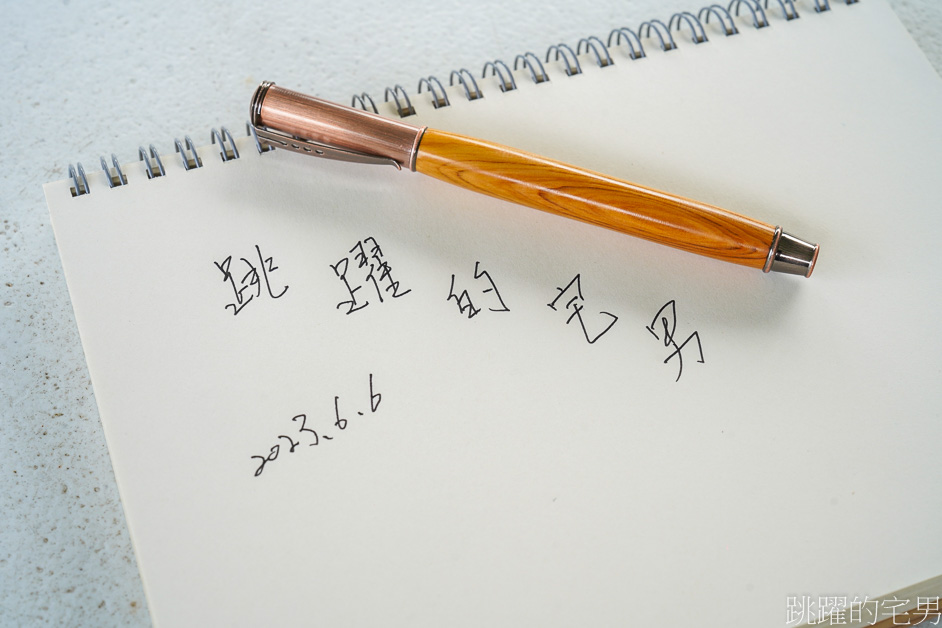 跳躍的宅男
2023.6.6
跳躍的宅男